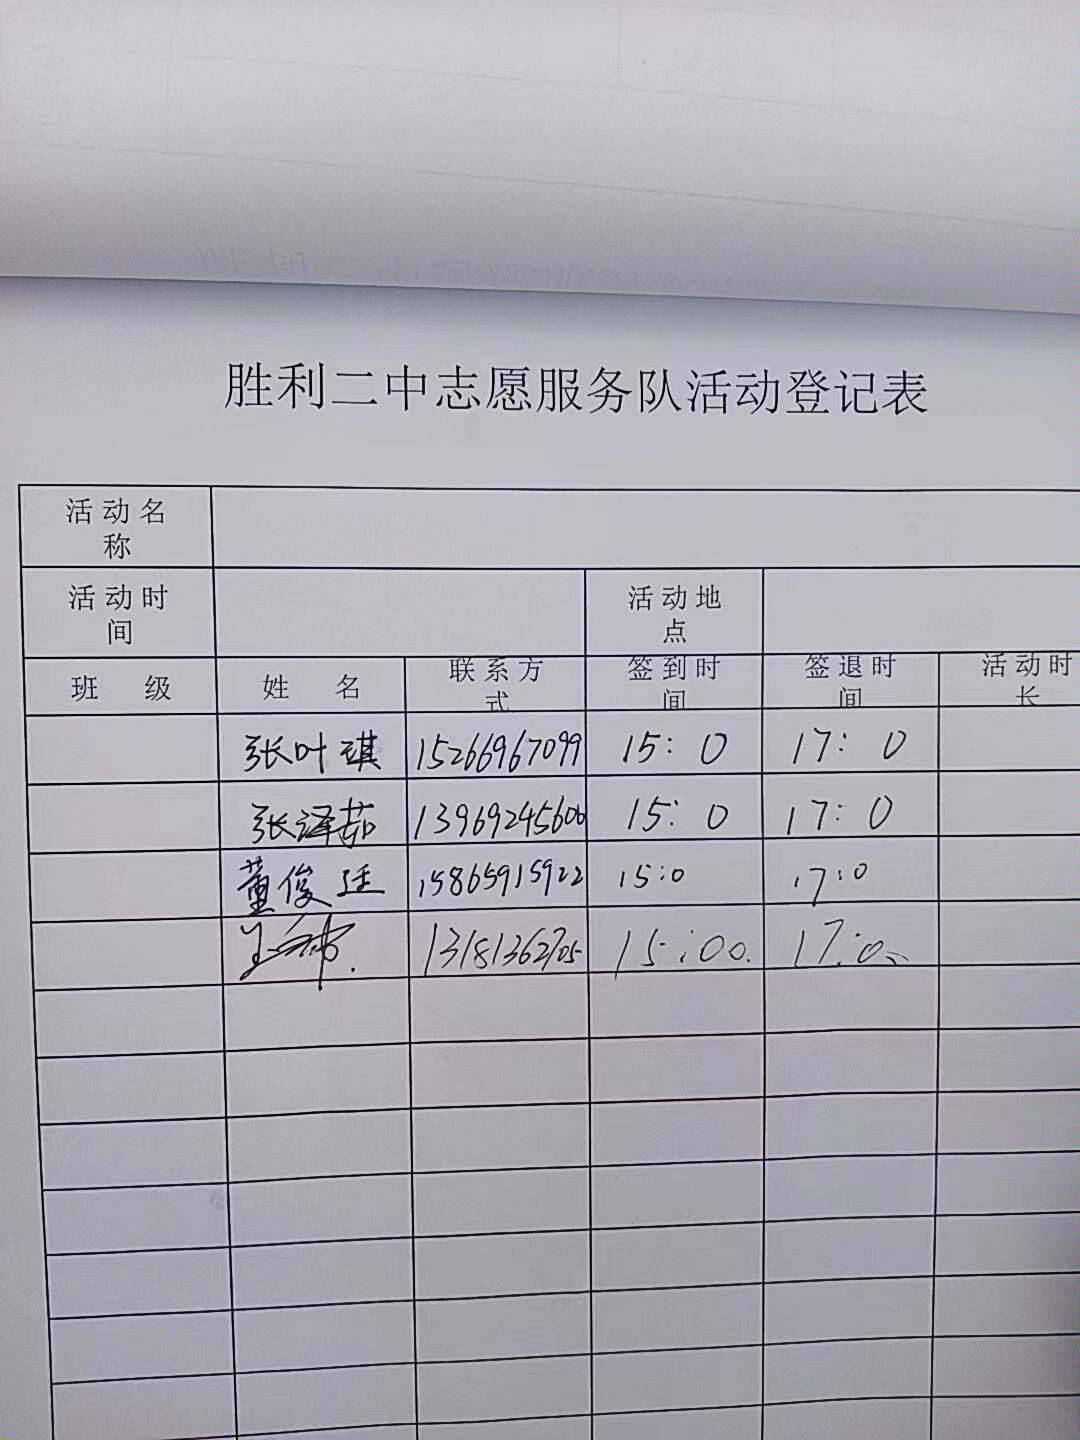 胜利二中志愿服务队活动登记表
活动名
称
活动时
间
活动地
点
班 级 姓 名 联系方
式 签到时
间 签退时
间 活动时
长
张叶琪 15266967099 15:0 17:0
张泽茹 13969245600 15:0 17:0
董俊廷 15865915922 15:0 17:0
王 13181362705 15:00. 17:00